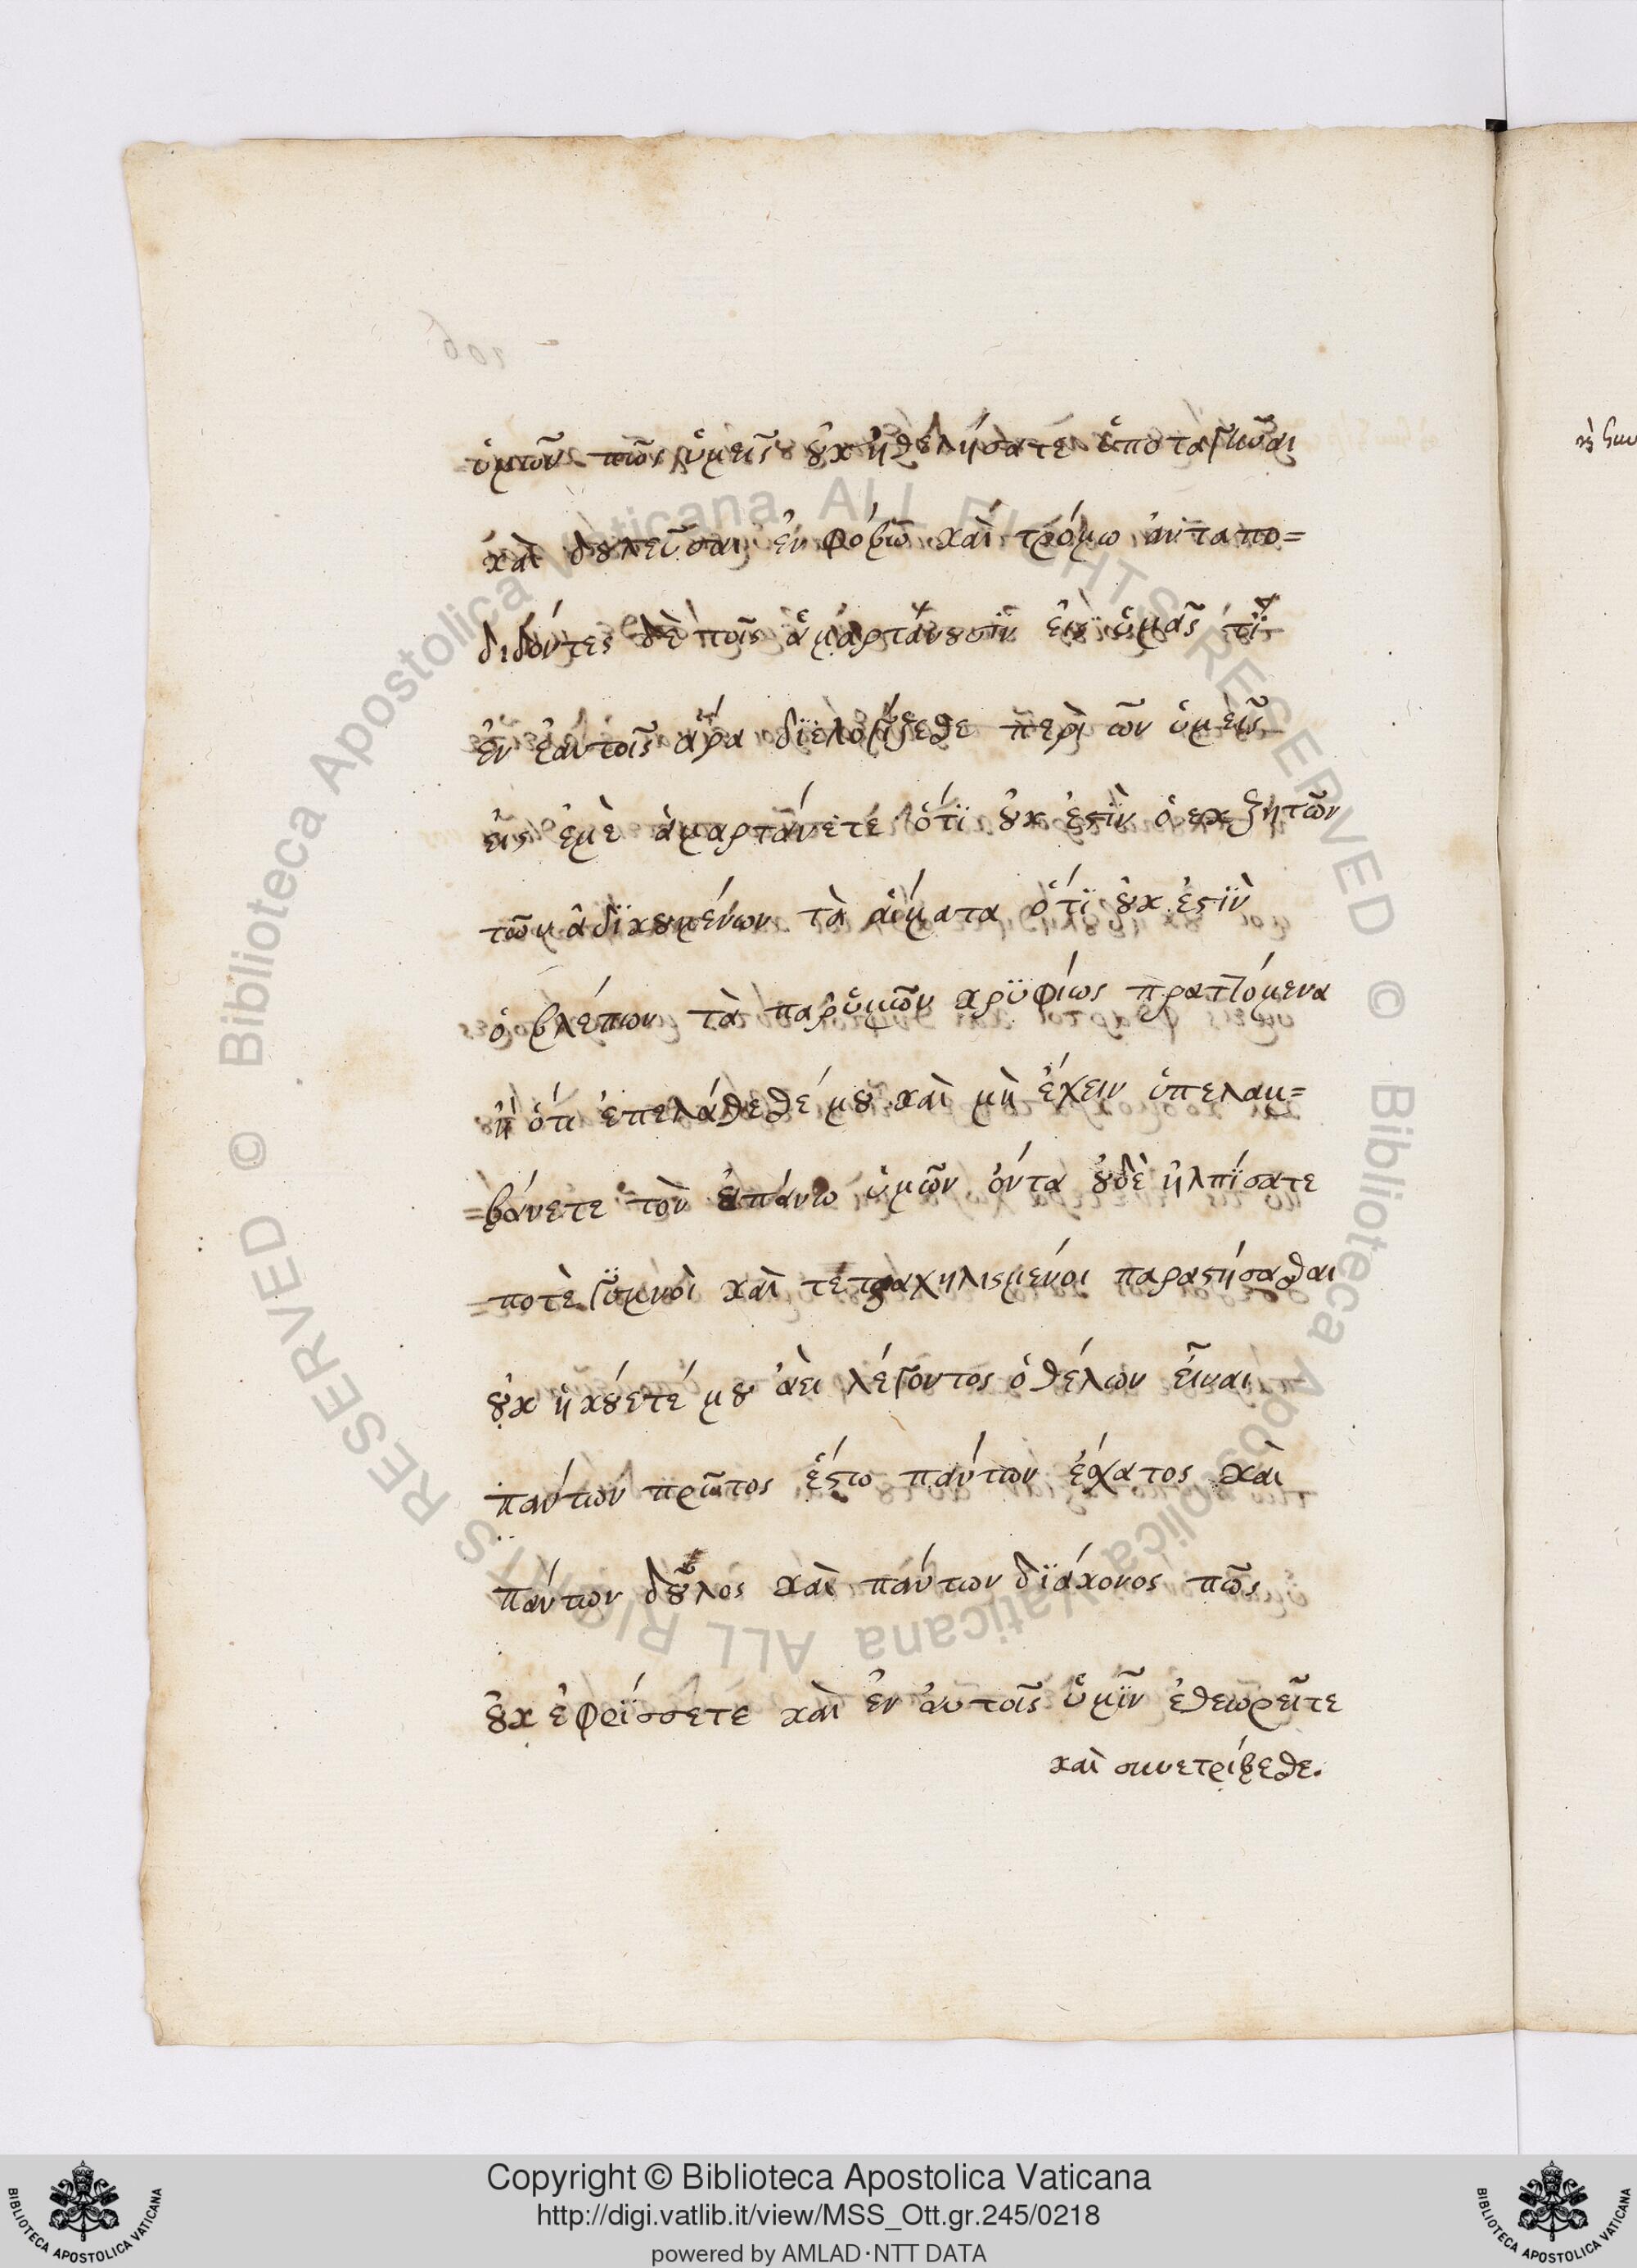 ὑμῶν πῶς ὑμεῖς οὐκ ἠθελήσατε ὑποταγῆναι
καὶ δουλεῦσαι ἐν φόβῳ καὶ τρόμω ἀνταπο=
διδόντες δὲ τοῖς ἁμαρτάνουσϊν εἰς ὑμᾶς τί
ἐν ἑαυτοῖς ἄρα διελογίζεσθε περὶ ὧν ὑμεῖς
εἰς ἐμὲ ἁμαρτάνετε ὅτϊ οὐκ ἐστὶν ὁ εκζητῶν
τῶν ἀδϊκουμένων τὰ αἵματα ὅτϊ οὐκ ἐστϊν
ὁ βλέπων τὰ παρ' ὑμῶν κρϋφίως πραττόμενα
ἢ ὅτι ἐπελάθεσθέ μου καὶ μὴ ἔχειν ὑπελαμ=
=βάνετε τὸν ἐπάνω ὑμῶν ὄντα οὐδὲ ἠλπίσατε
ποτὲ γϋμνοὶ καὶ τετραχηλισμένοι παραστήσασθαι
οὐκ ἠκούετέ μου ἀεὶ λέγοντος ὁ θέλων εἶναι
πάντων πρῶτος ἔστω πάντων ἔσχατος καὶ
πάντων δοῦλος καὶ πάντων δϊάκονος πῶς
οὐκ ἐφρίσσετε καὶ ἐν αὐτοῖς ὑμῖν ἐθεωρεῖτε
καὶ συνετρίβεσθε.
Copyright © Biblioteca Apostolica Vaticana
http://digi.vatlib.it/view/MSS_Ott.gr.245/0218
powered by AMLAD·NTT DATA
BIBLIOTECA APOSTOLICA VATICANA
BIBLIOTECA APOSTOLICA VATICANA
© Biblioteca Apostolica Vaticana ALL RIGHTS RESERVED
© Biblioteca Apostolica Vaticana ALL RIGHTS RESERVED